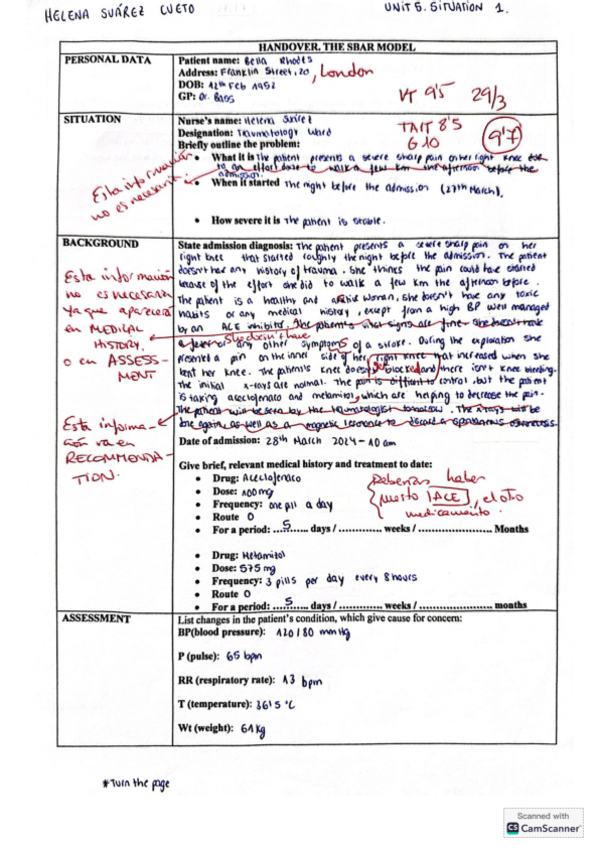 HELENA SUÁREZ CUETO
UNIT 5. SITUATION 1.
HANDOVER. THE SBAR MODEL
PERSONAL DATA
Patient name: Bella Rhodes
Address: Franklin Street, 20, London
DOB: 12th Feb 1952
GP: Dr. Bass
VT 9'5 29/3
TAIT 8'5
G 10
9'7
SITUATION
Nurse's name: Helena Suárez
Designation: Traumatology Ward
Briefly outline the problem:
• What it is The patient presents a severe sharp pain on her right knee due
to an effort done to walk a few km the afternoon before the
admission.
• When it started The night before the admission (27th March).
• How severe it is The patient is stable.
Esta información
no es necesaria
BACKGROUND
State admission diagnosis: The patient presents a severe sharp pain on her
right knee that started roughly the night before the admission. The patient
doesn't has any history of trauma. She thinks the pain could have started
because of the effort she did to walk a few km the afternoon before.
The patient is a healthy and active woman, she doesn't have any toxic
habits or any medical history, except from a high BP well managed
by an ACE inhibitor. The patient's vital signs are fine. She doesn't have
She doesn't have
a fever or any other symptoms of a stroke. During the exploration she
presented a pain on the inner side of her right knee that increased when she
bent her knee. The patient's knee doesn't blocked and there isn't knee bleeding.
The initial x-rays are normal. The pain is difficult to control, but the patient
is taking aceclofenaco and metamizol, which are helping to decrease the pain.
The patient will be seen by the traumatologist tomorrow. The x-rays will be
done again, as well as a magnetic resonance to discard a spontaneous
Esta información
no es necesaria
ya que aparecerá
en MEDICAL
HISTORY.
o en ASSESS-
MENT
Esta informa-
ción va en
RECOMMENDA-
TION.
Date of admission: 28th March 2024 - 10 am
Give brief, relevant medical history and treatment to date:
• Drug: Aceclofenaco
• Dose: 100 mg
• Frequency: one pill a day
• Route O
• For a period: ....5...... days / ............. weeks / .................... Months
Deberías haber
puesto ACE, el otro
medicamento.
• Drug: Metamizol
• Dose: 575 mg
• Frequency: 3 pills per day every 8 hours
• Route O
• For a period: ....5...... days / ............. weeks / .................... months
ASSESSMENT
List changes in the patient's condition, which give cause for concern:
BP(blood pressure): 120/80 mmHg
P (pulse): 65 bpm
RR (respiratory rate): 13 bpm
T (temperature): 36'5 °C
Wt (weight): 61 Kg
*Turn the page
Scanned with
CS CamScanner